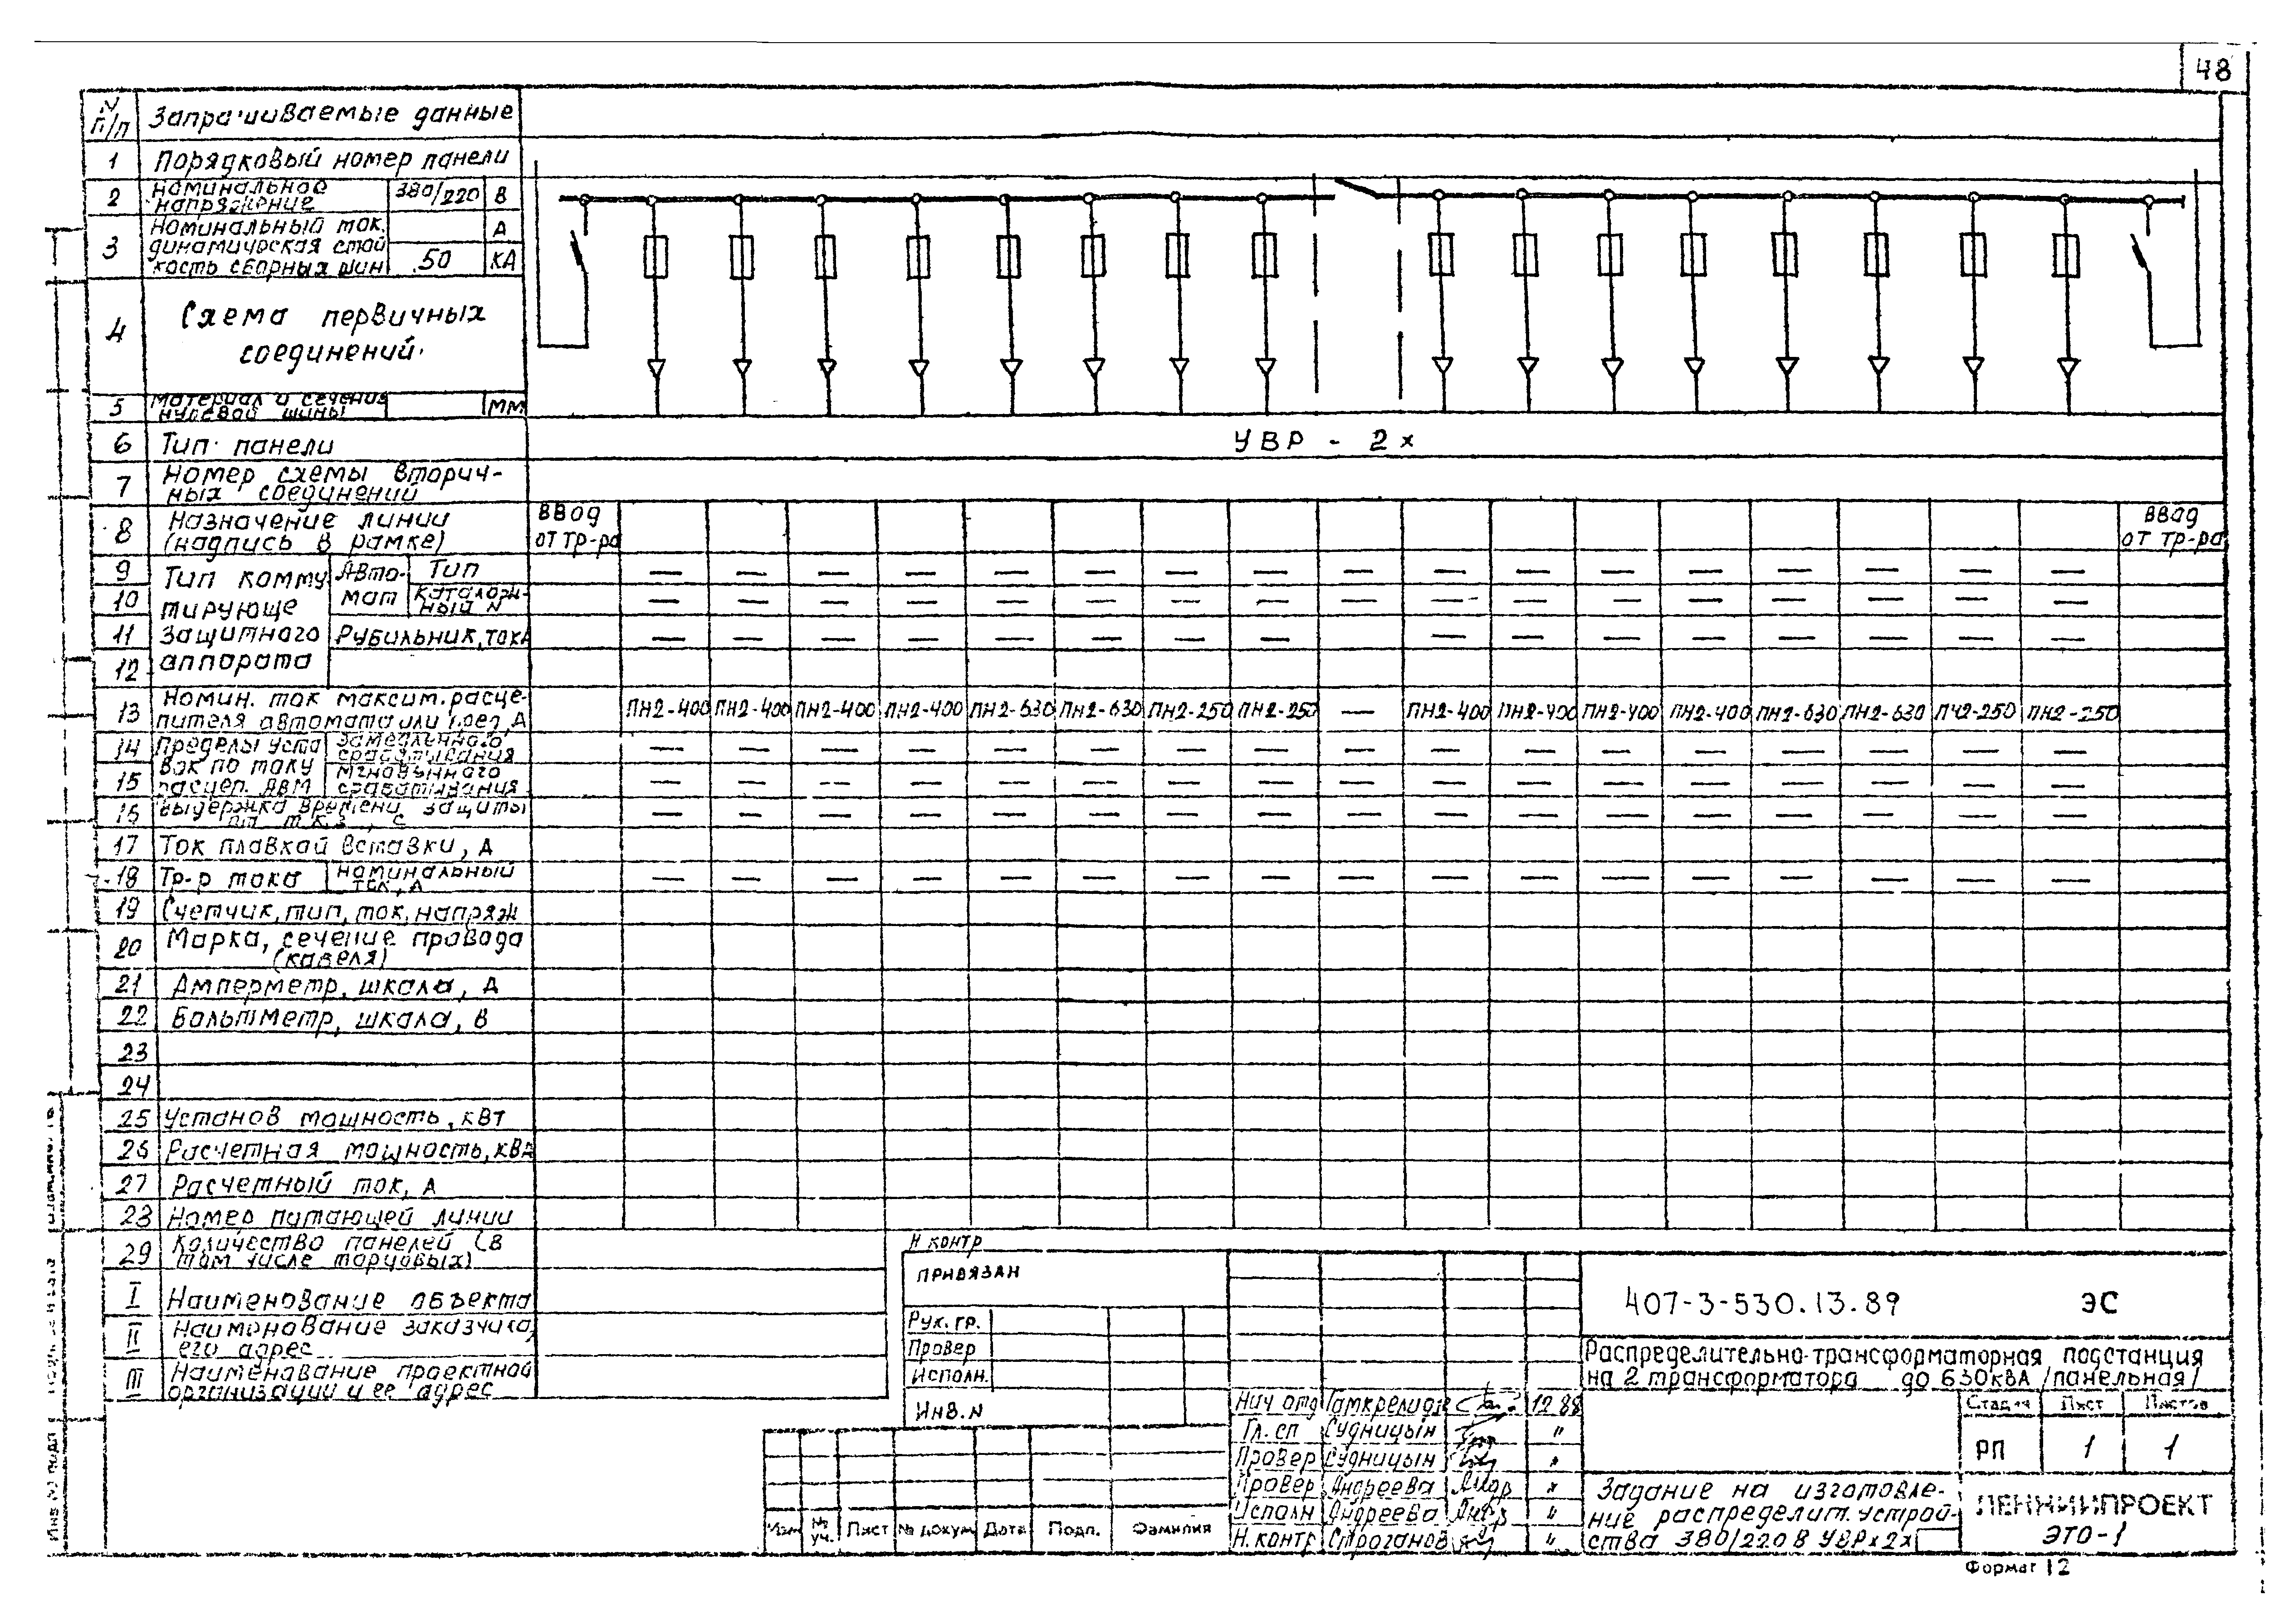 48
N п/п Запрашиваемые данные
1 Порядковый номер панели
2 Номинальное напряжение 380/220 В
3 Номинальный ток, А
динамическая стой
кость сборных шин 50 кА
4 Схема первичных
соединений
5 Материал и сечение
нулевой шины мм
6 Тип панели УВР - 2х
7 Номер схемы вторич-
ных соединений
8 Назначение линии
(надпись в рамке)
ввод
от тр-ра
ввод
от тр-ра
Тип комму
тирующе
защитного
аппарата
9 Авто- Тип — — — — — — — — — — — — — — — — —
10 мат каталож-
ный N — — — — — — — — — — — — — — — — —
11 Рубильник, ток А — — — — — — — — — — — — — — — —
12
13 Номин. ток максим. расце-
пителя автомата или пред, А
ПН2-400 ПН2-400 ПН2-400 ПН2-400 ПН2-630 ПН2-630 ПН2-250 ПН2-250 — ПН2-400 ПН2-400 ПН2-400 ПН2-400 ПН2-630 ПН2-630 ПН2-250 ПН2-250
Пределы уста
вок по току
расцеп. АВМ
14 замедленного
срабатывания — — — — — — — — — — — — — — — — —
15 мгновенного
срабатывания — — — — — — — — — — — — — — — — —
16 Выдержка времени защиты
— — — — — — — — — — — — — — — — —
17 Ток плавкой вставки, А
18 Тр-р тока номинальный
ток, А — — — — — — — — — — — — — — — — —
19 Счетчик, тип, ток, напряж
20 Марка, сечение провода
(кабеля)
21 Амперметр, шкала, А
22 Вольтметр, шкала, В
23
24
25 Установ мощность, кВт
26 Расчетная мощность, кВА
27 Расчетный ток, А
28 Номер питающей линии
29 Количество панелей (в
том числе торцовых)
I Наименование объекта
II Наименование заказчика,
его адрес
III Наименование проектной
организации и ее адрес
Н контр
Привязан
Рук. гр.
Провер
Исполн.
Инв. N
Изм № уч. Лист № докум Дата Подп. Фамилия
Нач отд Гамкрелидзе 12 88
Гл. сп Судницын "
Провер Судницын "
Провер Андреева "
Исполн Андреева "
Н. контр Строганов "
407-3-530.13.89 ЭС
Распределительно-трансформаторная подстанция
на 2 трансформатора до 630кВА /панельная/
Стадия Лист Листов
РП 1 1
Задание на изготовле-
ние распределит. устрой-
ства 380/220 В УВРх2х
ЛЕННИИПРОЕКТ
ЭТО-1
Формат 12
Инв № подл